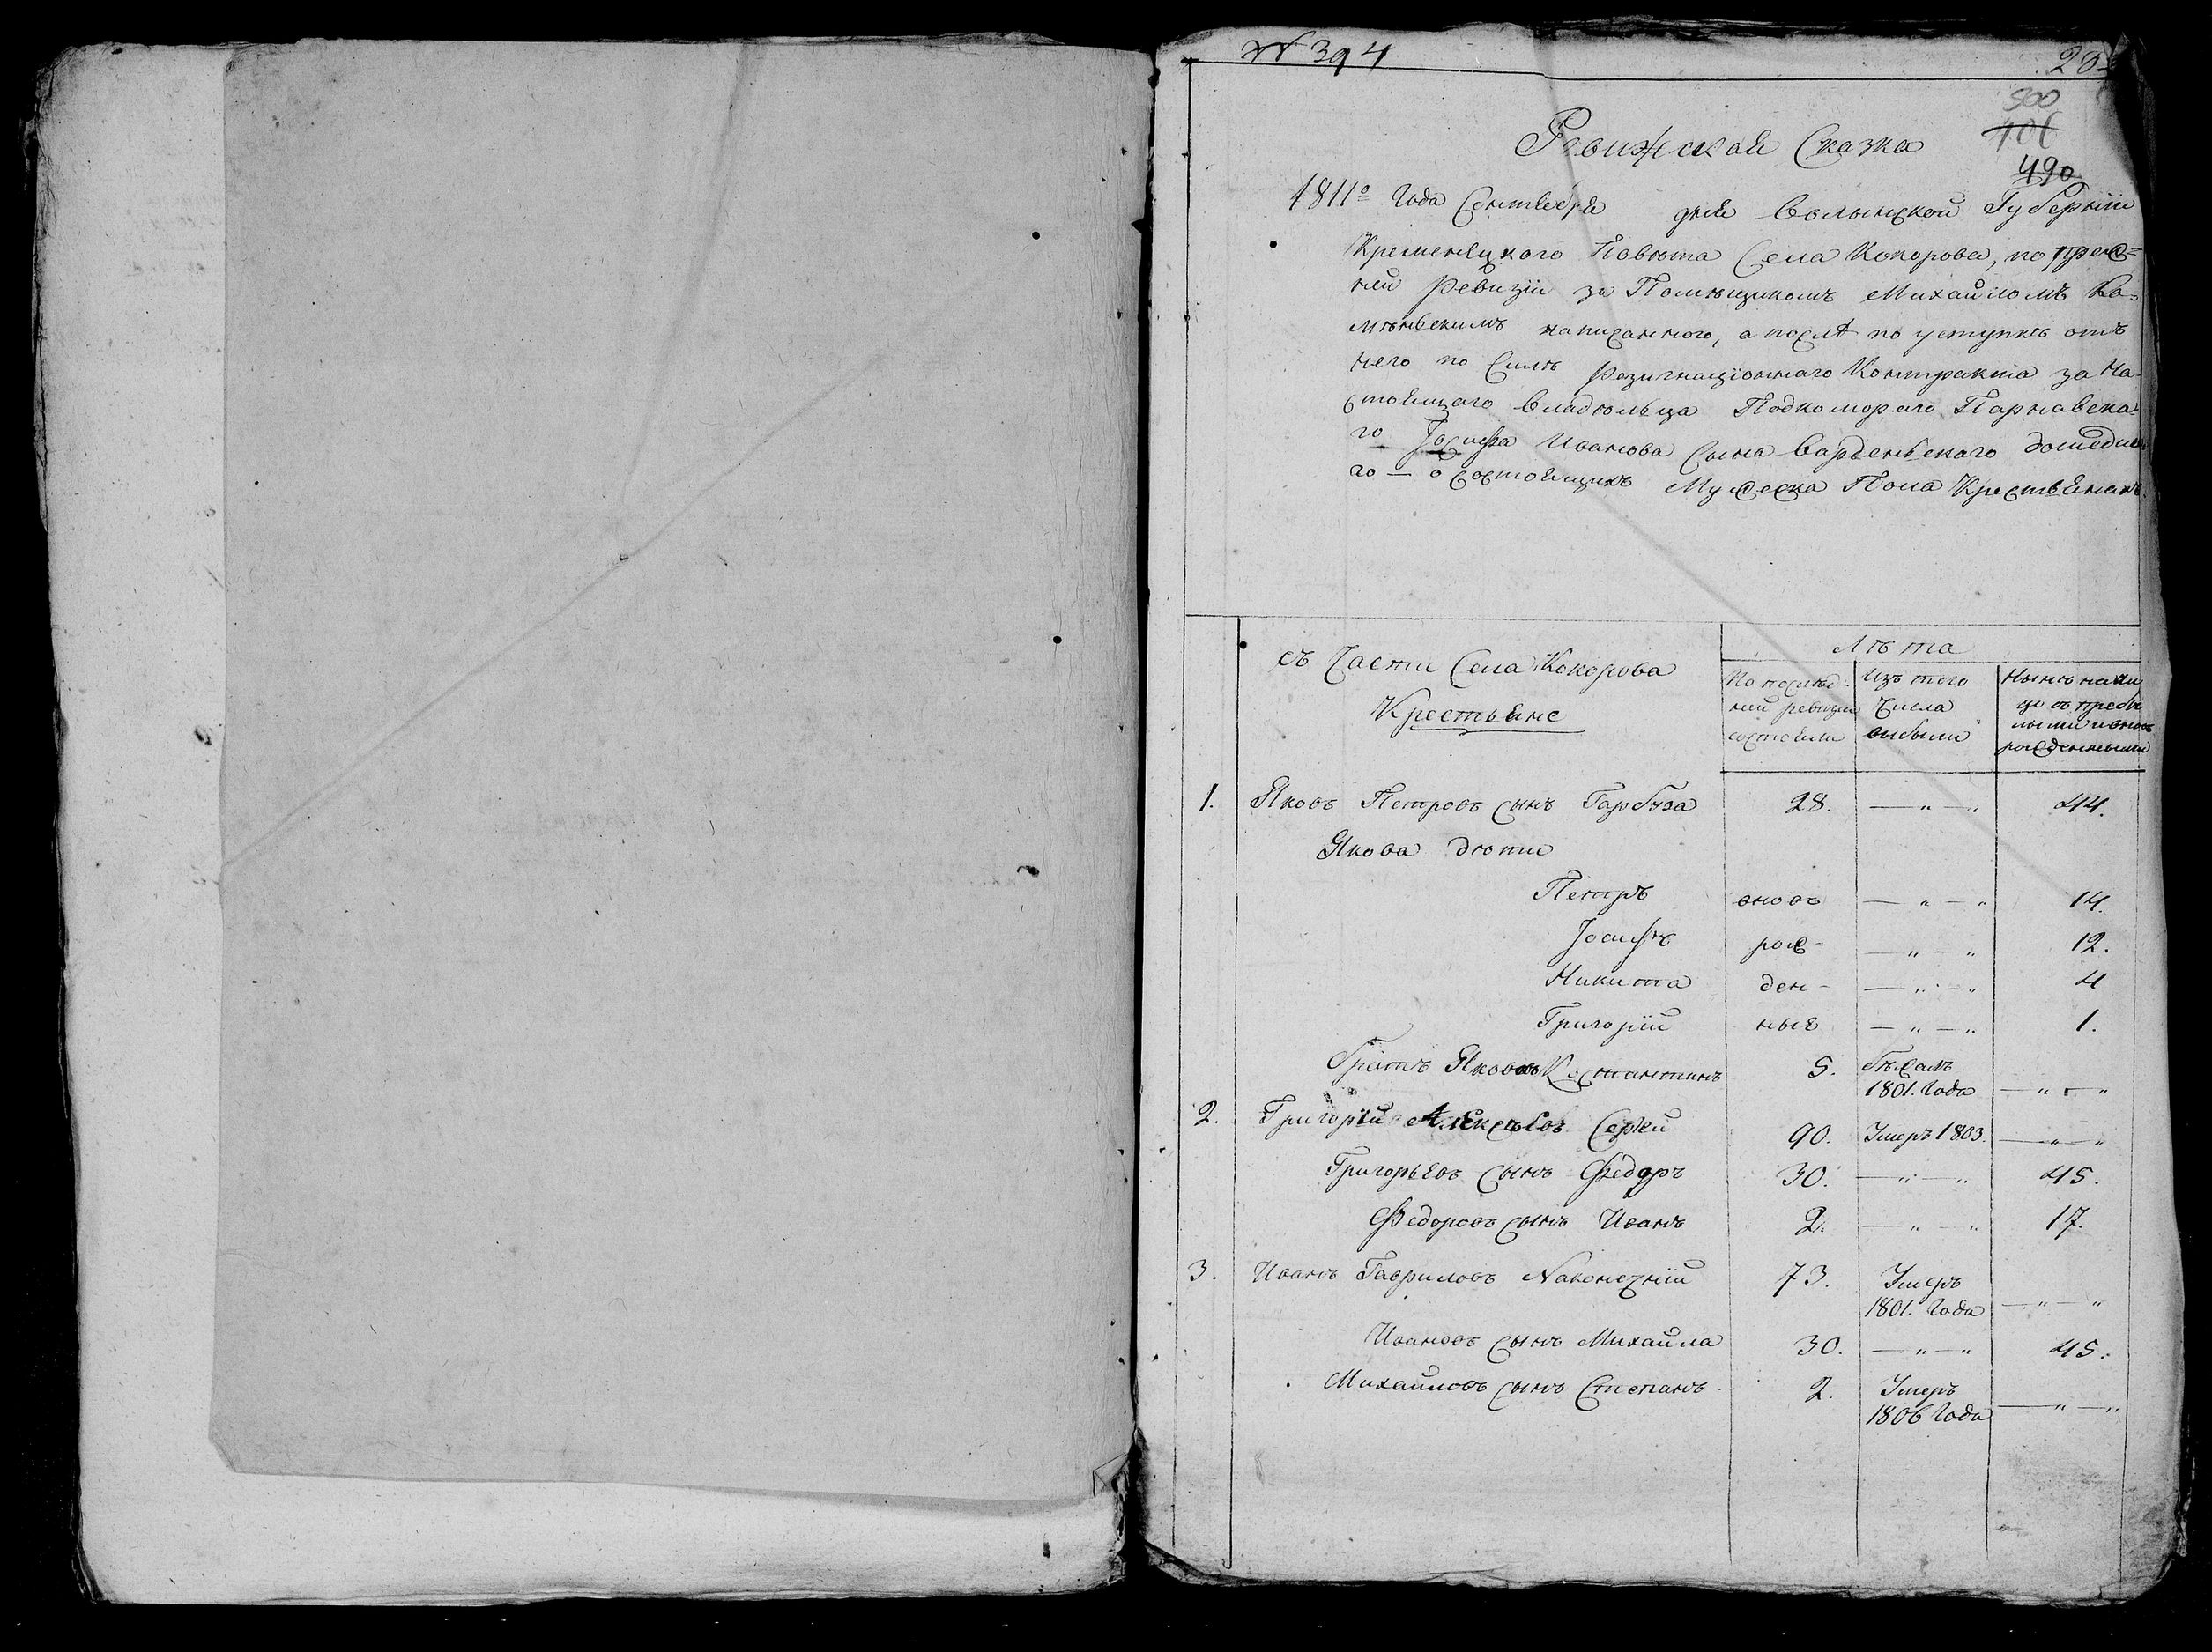 № 394
500
406
490
Ревижская Сказка
1811º года Сентября дня Волынской Губернїи
Кременецкого Повѣта Села Кокорова, по преж=
ней Ревизїи за Помѣщикомъ Михайломъ Ка=
мѣнскимъ написанного, а послѣ по уступкѣ отъ
него по Силѣ Резигнацїоннаго Контракта за На-
стоящаго владѣльца Подкомораго Парнавска=
го Іосифа Иванова Сына
го — о состоящихъ Мужеска Пола Крестьянахъ.
съ Части Села Кокорова
Крестьяне
Лѣта
По послѣд-
ней ревизїи
состояли
Изъ того
Числа
выбыли
Нынѣ нали
цо съ прибы
лыми и вновь
рожденными
1. Яковъ Петровъ сынъ Гарбуза 28. — „ — „ 44.
Якова дѣти
Петръ вновъ — „ — „ 14.
Іосифъ рож- — „ — „ 12.
Никита ден- — „ — „ 4
Григорїй ные — „ — „ 1.
братъ Яковъ Костантинъ 5. бѣжалъ
1801. Года — „ — „
2. Григорїй Алексѣевъ 90. Умеръ 1803. — „ — „
Григорьевъ сынъ Федоръ 30. — „ — „ 45.
Федоровъ сынъ Иванъ 2. — „ — „ 17.
3. Иванъ Гавриловъ Наконечнїй 73. Умеръ
1801. Года — „ — „
Ивановъ сынъ Михайла 30. — „ — „ 45.
Михайловъ сынъ Степанъ 2. Умеръ
1806 Года — „ — „